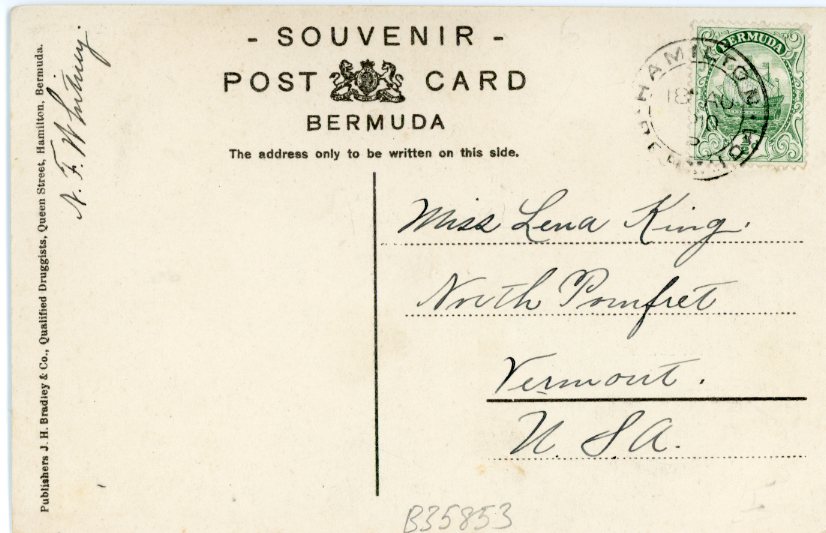 - SOUVENIR -
POST CARD
BERMUDA
The address only to be written on this side.
BERMUDA
HAMILTON
18
10
Miss Lena King.
North Pomfret
Vermont.
U. S. A.
N. F. Whitney.
Publishers J. H. Bradley & Co., Qualified Druggists, Queen Street, Hamilton, Bermuda.
B35853